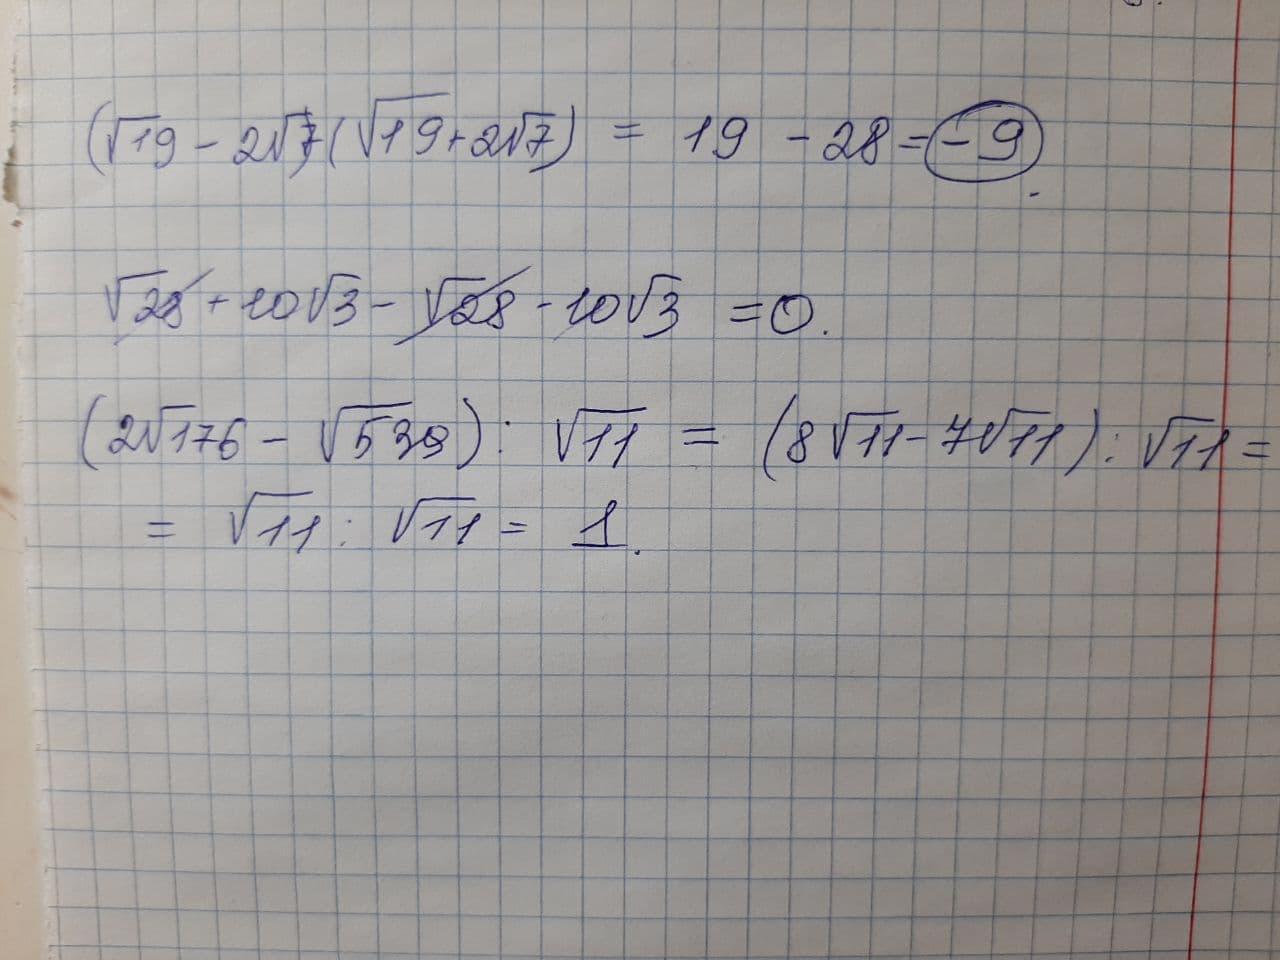 (√19 - 2√7)(√19 + 2√7) = 19 - 28 = -9.
√28 + 10√3 - √28 - 10√3 = 0.
(2√176 - √539) : √11 = (8√11 - 7√11) : √11 =
= √11 : √11 = 1.